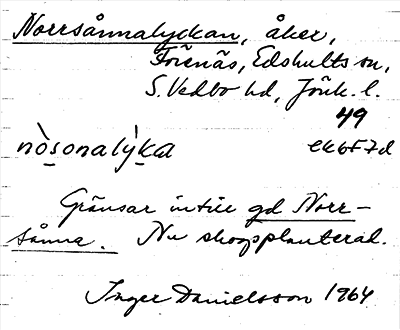 Norrsånnalyckan, åker,
Förenäs, Edshults sn,
S. Vedbo hd, Jönk. l.
49
nòsonalỳka ek6F7d
Gränsar intill gd Norr-
sånna. Nu skogsplanterad.
Inger Danielsson 1964